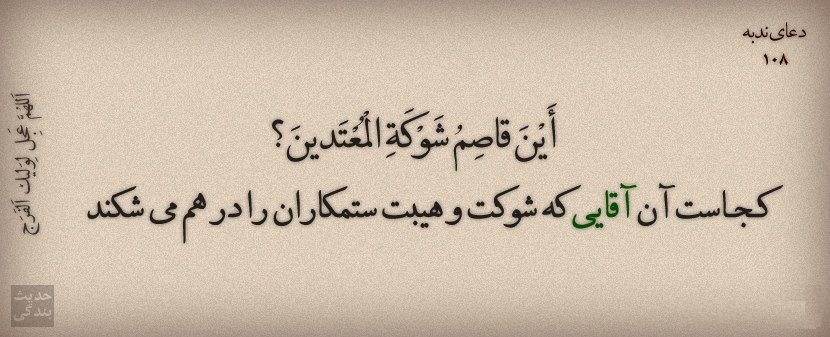 دعای ندبه
۱۰۸
أَيْنَ قاصِمُ شَوْكَةِ الْمُعْتَدينَ؟
کجاست آن آقایی که شوکت و هیبت ستمکاران را در هم می شکند
اَللهُمَّ عَجِّل لِوَلیِّکَ اَلفَرَج
حدیث
بندگی